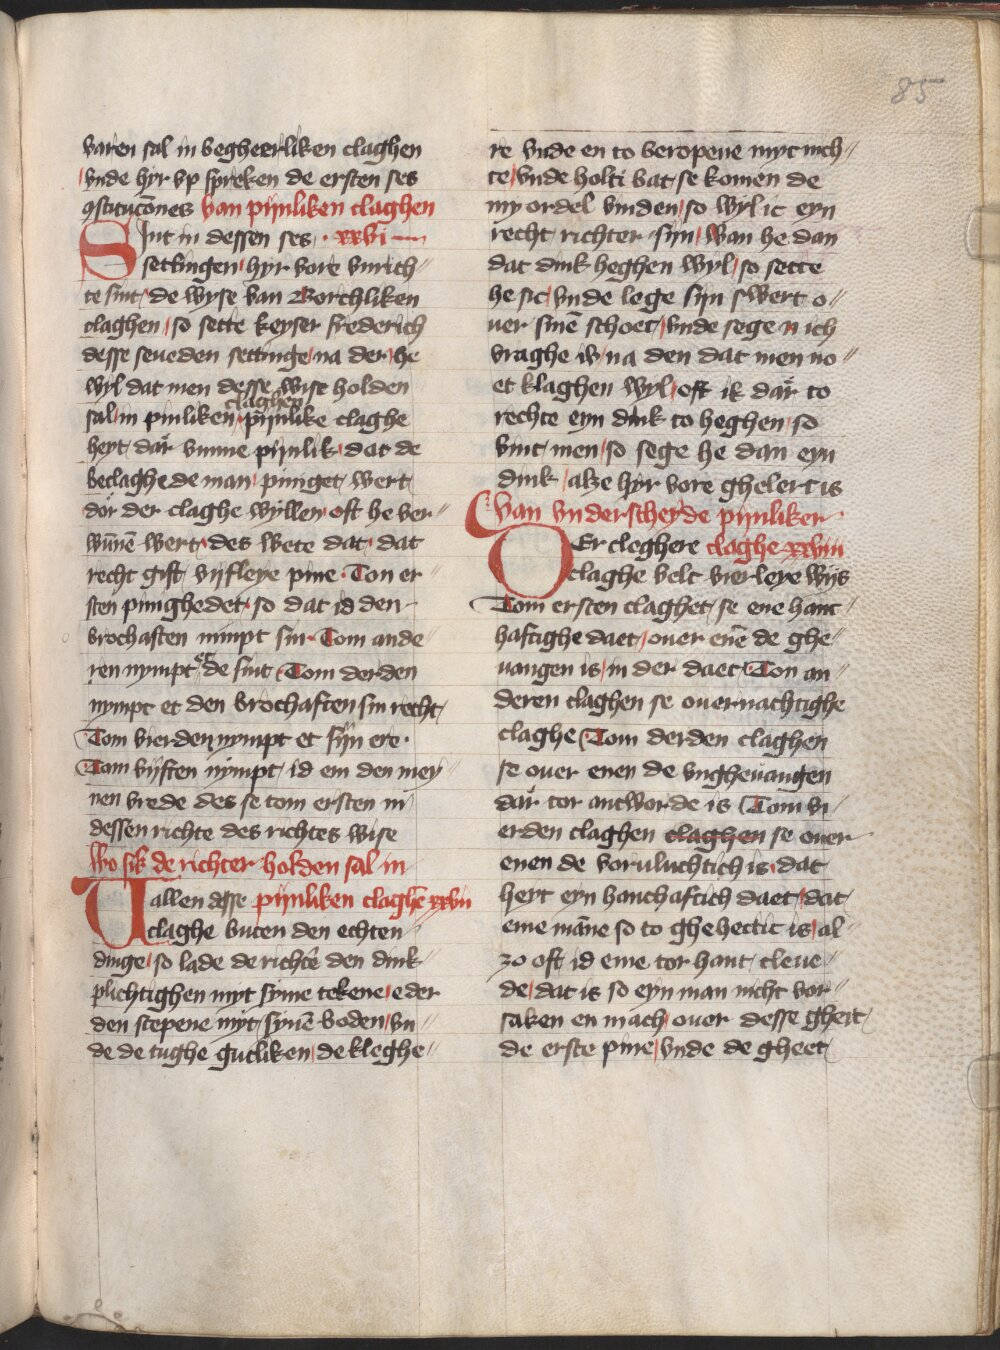 85
varen sal in begheerliken claghen
vnde hyr vp spreken de ersten ses
ꝯstitucōnes van pijnliken claghen
Sint in dessen ses · xxvi
settingen hyr vore vnrich〃
te sint de wyse van Borchliken
claghen so sette keyser frederich
desse seueden settinge na der he
wyl dat men desse wise holden
claghen
sal in pinliken pijnlike claghe
heyt dar vmme pijnlik dat de
beclaghede man piniget wert
dor der claghe wyllen oft he ver〃
wūnē wert des wete dat dat
recht gift vijfleye pine Ton er〃
sten pinighedet so dat id den
brochaften nimpt sin Tom ande〃
ren nympt et de sint Tom derden
nympt et den brochaften sin recht
Tom vierden nympt et sijn ere
Tom vijften nympt id em den mey〃
nen vrede des se tom ersten in
dessen richte des richtes wise
Wo sik de richter holden sal in
Uallen desse pijnliken claghē xxvii
claghe buten den echten
dinge so lade de richtē den dink〃
plichtighen myt syme tekene eder
den stepene myt synē boden vn〃
de de tughe gutliken de kleghe〃
re vnde en to beropene myt nich〃
te vnde holti bat se komen de
my ordel vinden so wyl ic eyn
recht richter sijn Wan he dan
dat dink heghen wyl so sette
he sic vnde lege sijn swert o〃
uer sinē schoet vnde sege n ich
vraghe iv na den dat men no〃
et klaghen wyl oft ik dar to
rechte eyn dink to heghen so
vint men so sege he dan eyn
dink alze hyr vore ghelert is
Van vnderscheyde pijnliker
DEr cleghere claghe xxviii
claghe velt vierleye wijs
Tom ersten claghet se ene hant〃
haftighe daet ouer enē de ghe〃
uangen is in der daet Ton an〃
deren claghen se ouernachtighe
claghe Tom derden claghen
se ouer enen de vngheuangen
dar tor antworde is Tom vi〃
erden claghen claghen se ouer
enen de voruluchtich is dat
hert eyn hanthaftich daet dat
eme māne so to ghehectic is al〃
zo oft id eme tor hant cleue〃
de dat is so eyn man nicht vor〃
saken en mach ouer desse gheit
de erste pine vnde de gheet